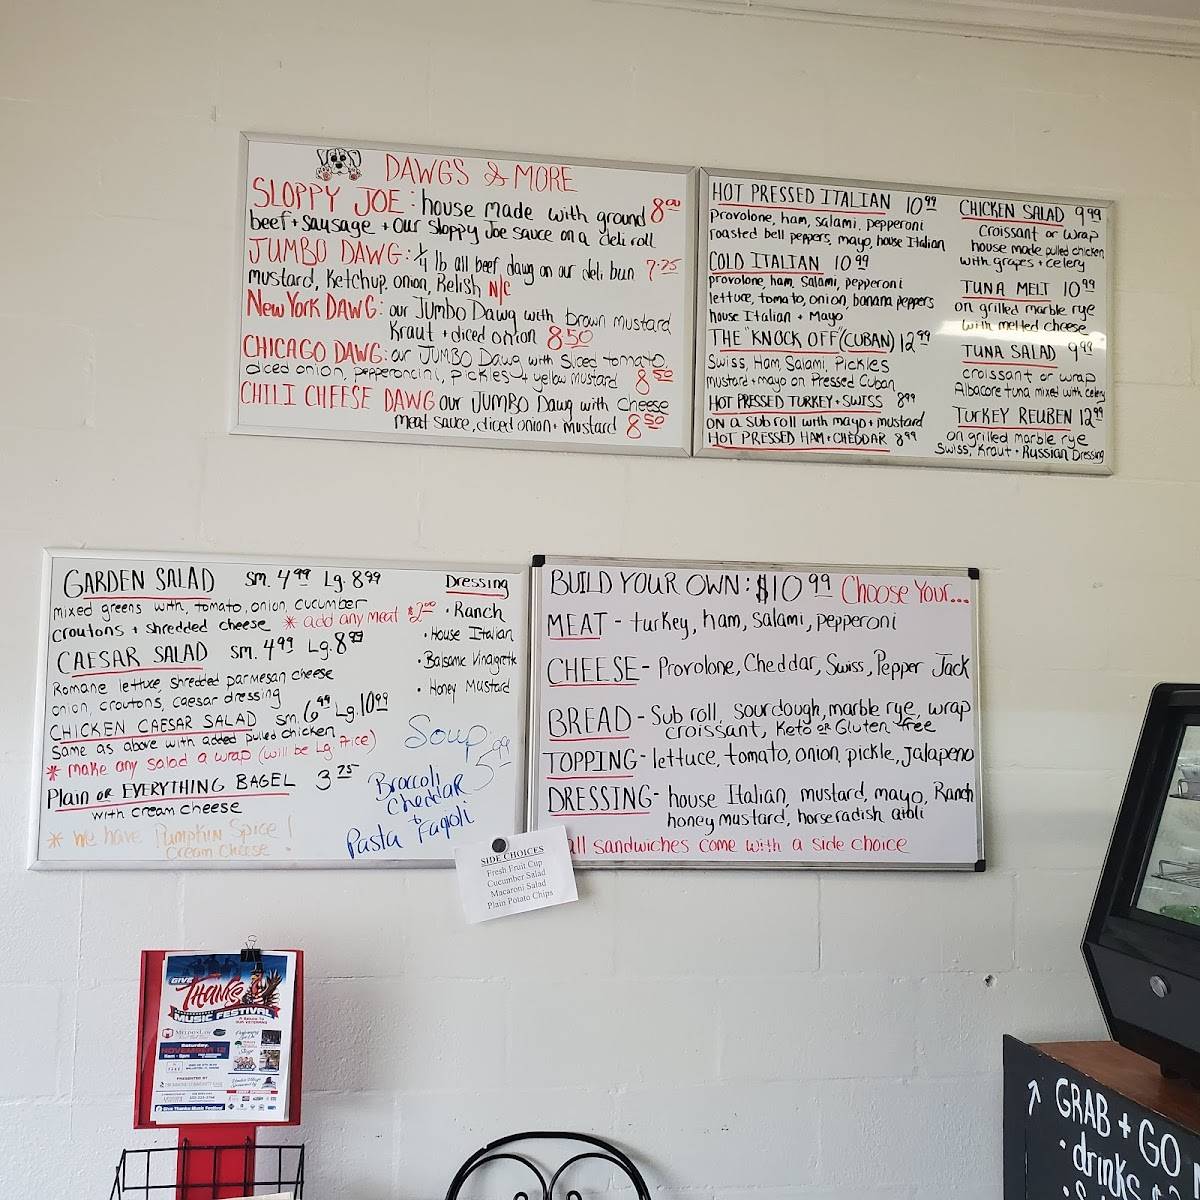 DAWGS & MORE
SLOPPY JOE: house made with ground 8.00
beef + sausage + our Sloppy Joe sauce on a deli roll
JUMBO DAWG: 1/4 lb all beef dawg on our deli bun 7.25
mustard, Ketchup, onion, Relish N/C
New York DAWG: our Jumbo Dawg with brown mustard
Kraut + diced onion 8.50
CHICAGO DAWG: our JUMBO Dawg with Sliced tomato,
diced onion, pepperoncini, pickles + yellow mustard 8.50
CHILI CHEESE DAWG our JUMBO Dawg with cheese
meat sauce, diced onion + mustard 8.50
HOT PRESSED ITALIAN 10.99
Provolone, ham, salami, pepperoni
roasted bell peppers, mayo, house Italian
COLD ITALIAN 10.99
provolone, ham, Salami, pepperoni
lettuce, tomato, onion, banana peppers
house Italian + Mayo
THE "KNOCK OFF" (CUBAN) 12.99
Swiss, Ham, Salami, Pickles
mustard + mayo on Pressed Cuban
HOT PRESSED TURKEY + SWISS 8.99
ON a Sub roll with mayo + mustard
HOT PRESSED HAM + CHEDDAR 8.99
CHICKEN SALAD 9.99
Croissant or wrap
house made pulled chicken
with grapes + celery
TUNA MELT 10.99
on grilled marble rye
with melted cheese
TUNA SALAD 9.99
croissant or wrap
Albacore tuna mixed with celery
TURKEY REUBEN 12.99
on grilled marble rye
Swiss, Kraut + Russian Dressing
GARDEN SALAD sm. 4.99 Lg. 8.99
mixed greens with, tomato, onion, cucumber
croutons + shredded cheese * add any meat $2.00
CAESAR SALAD sm. 4.99 Lg. 8.99
Romane lettuce, shredded parmesan cheese
onion, croutons, caesar dressing
CHICKEN CAESAR SALAD sm. 6.99 Lg. 10.99
Same as above with added pulled chicken
* make any salad a wrap (will be Lg. Price)
Plain OR EVERYTHING BAGEL 3.25
with cream cheese
* we have Pumpkin Spice!
Cream Cheese
Dressing
• Ranch
• House Italian
• Balsamic Vinaigrette
• Honey Mustard
Soup 5.99
Broccoli
Cheddar
+
Pasta Fagoli
BUILD YOUR OWN: $10.99 Choose Your...
MEAT - turkey, ham, salami, pepperoni
CHEESE - Provolone, Cheddar, Swiss, Pepper Jack
BREAD - Sub roll, sourdough, marble rye, wrap
croissant, Keto or Gluten free
TOPPING - lettuce, tomato, onion, pickle, jalapeno
DRESSING - house Italian, mustard, mayo, Ranch
honey mustard, horseradish, aioli
all sandwiches come with a side choice
SIDE CHOICES
Fresh Fruit Cup
Cucumber Salad
Macaroni Salad
Plain Potato Chips
GIVE
THANKS
MUSIC FESTIVAL
A Salute to
OUR VETERANS
Saturday,
NOVEMBER 12
PRESENTED BY
Give Thanks Music Festival
GRAB + GO
• drinks